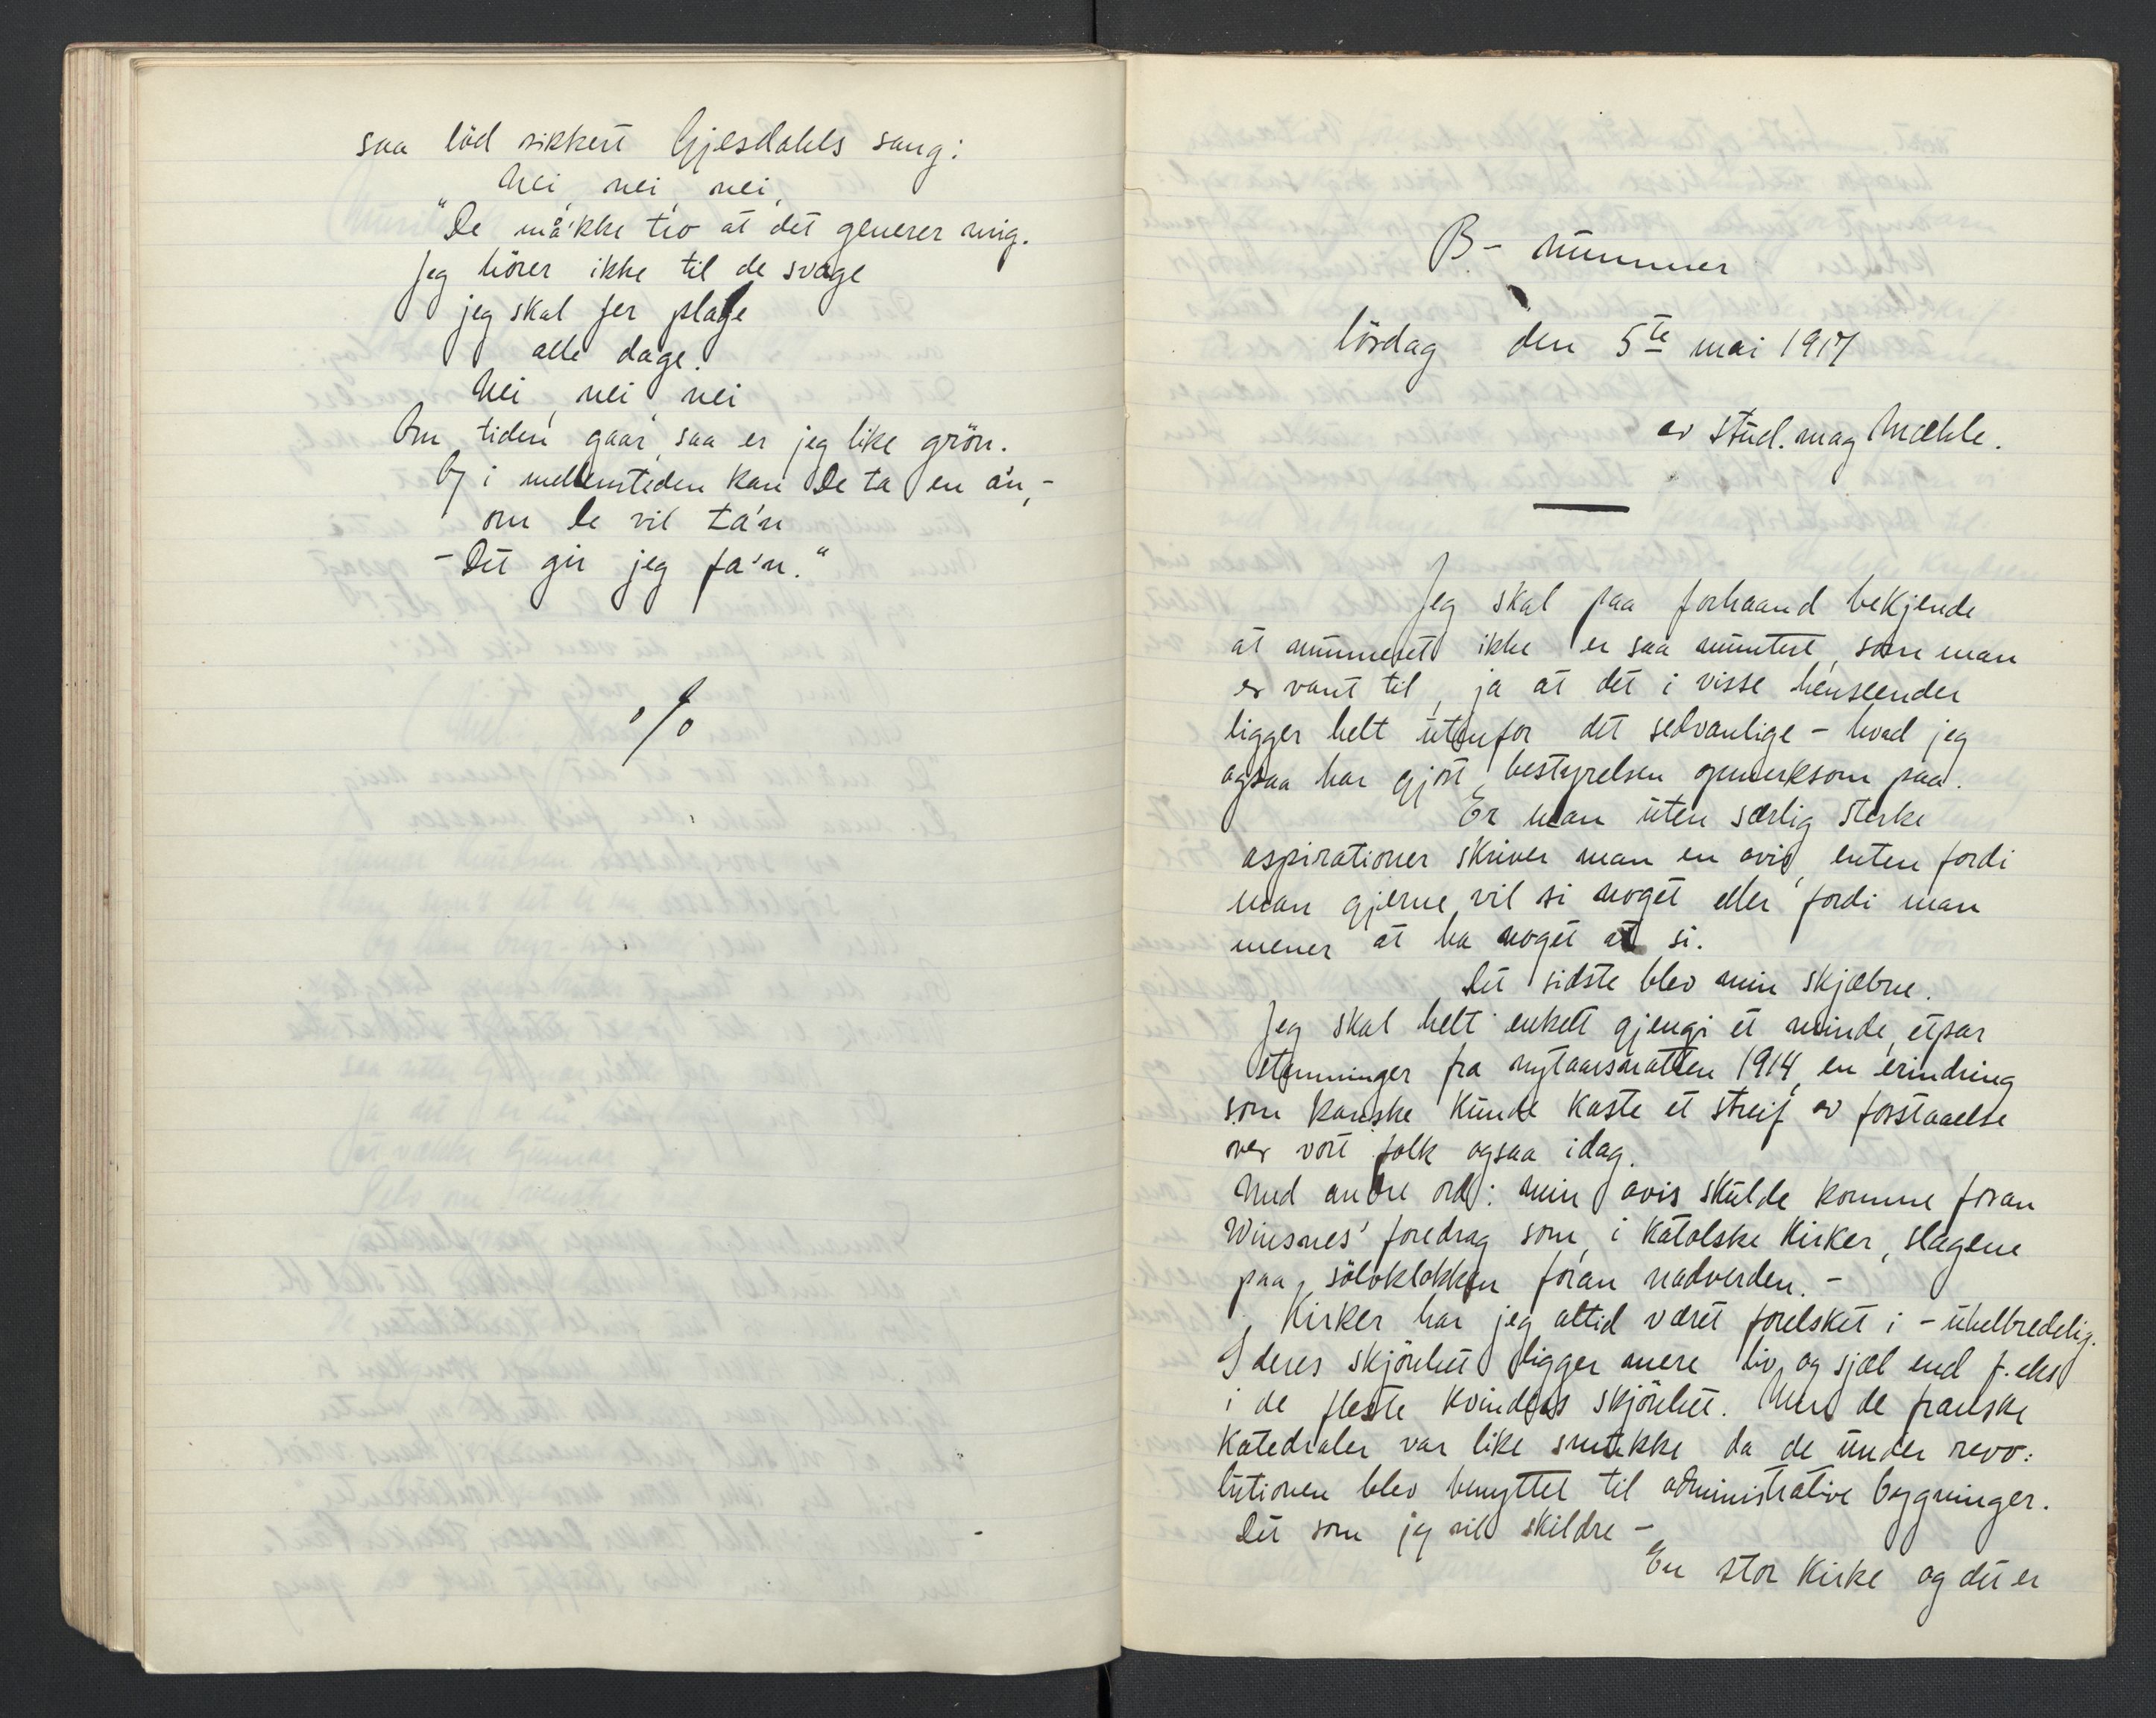 saa löd sikkert Gjesdahls sang:
Nei, nei, nei,
"De må'kke tro at det generer mig.
Jeg hörer ikke til de svage
jeg skal Jer plage
alle dage.
Nei, nei, nei
Om tiden gaar, saa er jeg like grön.
Og i mellemtiden kan De ta en án,-
om De vil ta'n
- Det gir jeg fa'n."
·/.
B- nummer
lördag den 5te mai 1917
av stud. mag Mæhle.
Jeg skal paa forhaand bekjende
at nummeret ikke er saa muntert, som man
er vant til, ja at det i visse henseender
ligger helt utenfor det sedvanlige - hvad jeg
ogsaa har gjort bestyrelsen opmerksom paa.
Er man uten særlig sterke
aspirationer skriver man en avis, enten fordi
man gjerne vil si noget eller fordi man
mener at ha noget at si.
Det sidste blev min skjæbne.
Jeg skal helt enkelt gjengi et minde, etpar
stemninger fra nytaarsnatten 1914, en erindring
som kanske kunde kaste et streif av forstaaelse
over vort folk ogsaa idag.
Med andre ord: min avis skulde komme foran
Winsnes' foredrag som, i katolske kirker, slagene
paa sölvklokken foran nadverden. -
Kirker har jeg altid været forelsket i - uhelbredelig.
I deres skjönhet ligger mere liv og sjæl end f. eks
i de fleste kvinders skjönhet. Men de franske
Katedraler var like smukke da de under revo:
lutionen blev benyttet til administrative bygninger.
Det som jeg vil skildre -
En stor kirke og det er